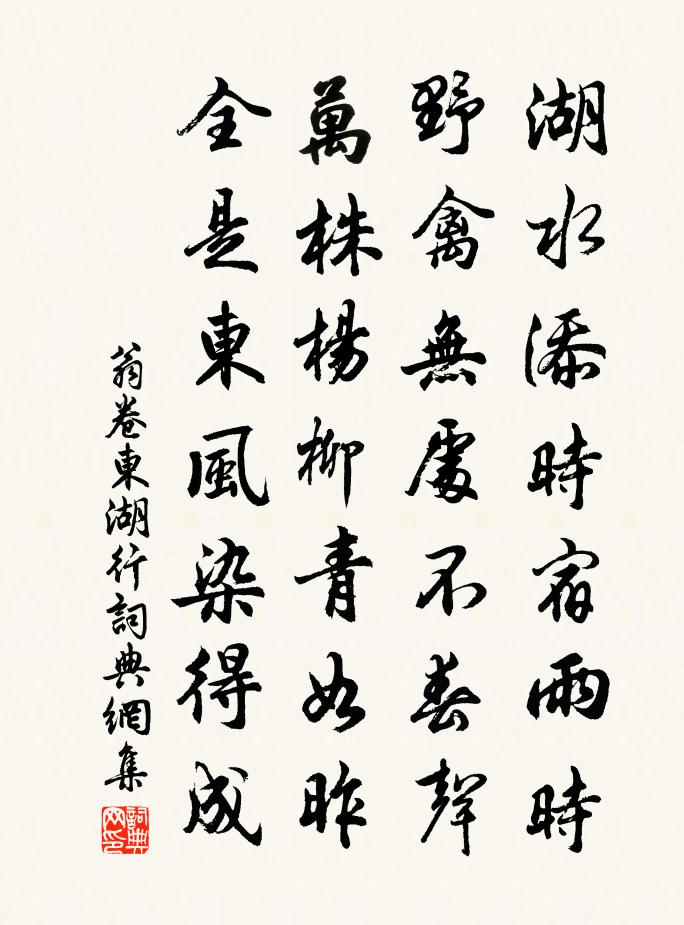 湖水添時宿雨時
野禽無處不春聲
萬株楊柳青如昨
全是東風染得成
翁卷東湖行詞典網集
詞典网印